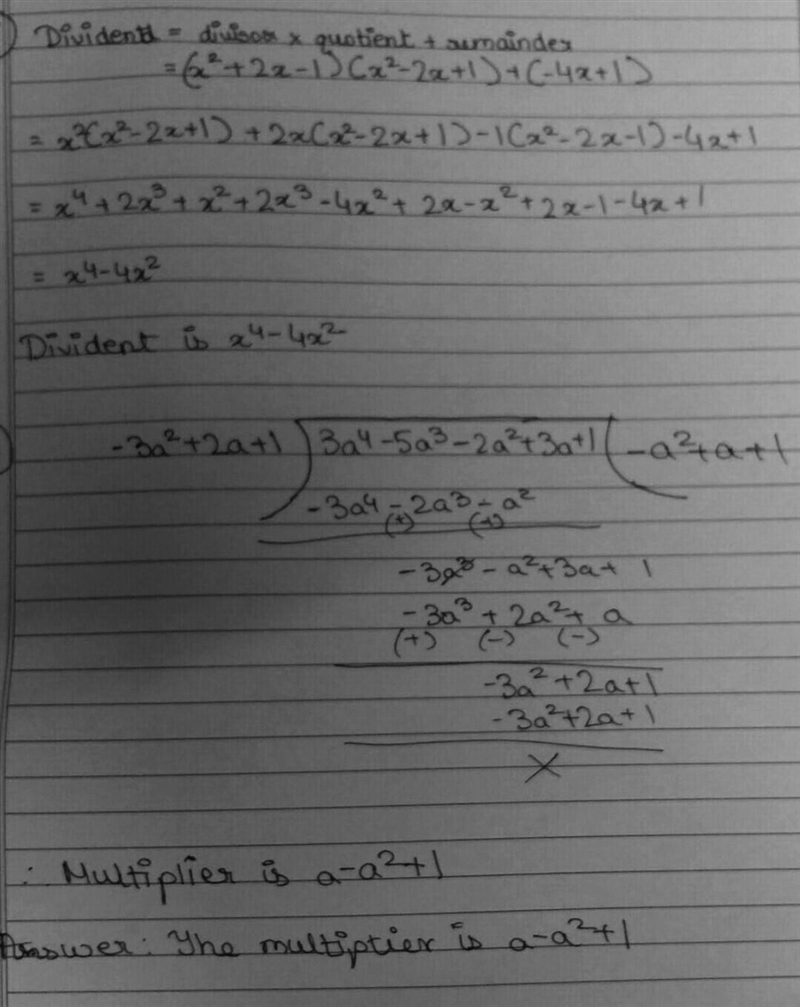 Dividend = divisor × quotient + remainder
= (x²+2x-1)(x²-2x+1)+(-4x+1)
= x²(x²-2x+1)+2x(x²-2x+1)-1(x²-2x-1)-4x+1
= x⁴+2x³+x²+2x³-4x²+2x-x²+2x-1-4x+1
= x⁴-4x²
Divident is x⁴-4x²
-3a²+2a+1 ) 3a⁴-5a³-2a²+3a+1 ( -a²+a+1
-3a⁴-2a³-a²
(+) (+)
-3a³-a²+3a+1
-3a³+2a²+a
(+) (-) (-)
-3a²+2a+1
-3a²+2a+1
×
∴ Multiplier is a-a²+1
Answer: The multiplier is a-a²+1